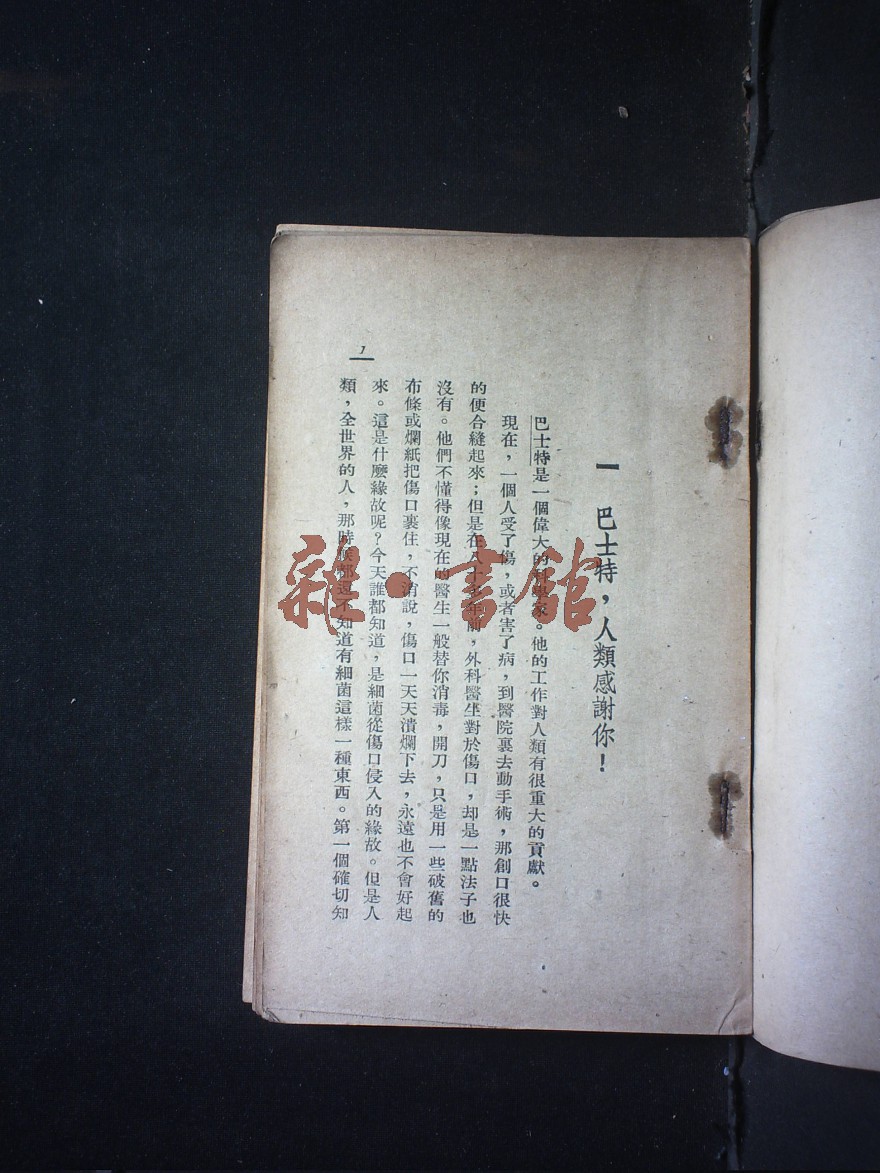 一 巴士特，人類感謝你！
巴士特是一個偉大的科學家。他的工作對人類有很重大的貢獻。
現在，一個人受了傷，或者害了病，到醫院裏去動手術，那創口很快
的便合縫起來；但是在八十多年前，外科醫生對於傷口，却是一點法子也
沒有。他們不懂得像現在的醫生一般替你消毒，開刀，只是用一些破舊的
布條或爛紙把傷口裹住，不消說，傷口一天天潰爛下去，永遠也不會好起
來。這是什麼緣故呢？今天誰都知道，是細菌從傷口侵入的緣故。但是人
類，全世界的人，那時候都還不知道有細菌這樣一種東西。第一個確切知
1
雜·書館